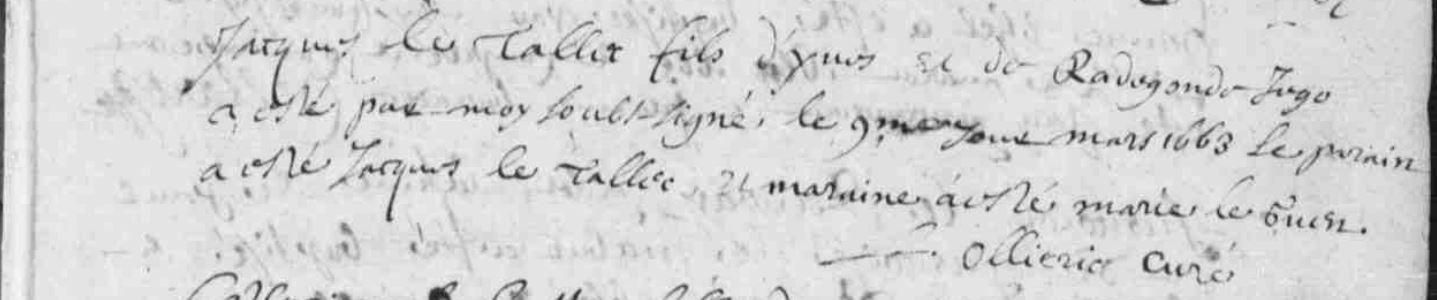 Jacques le Tallec fils d'yves et de Radegonde Jego
a esté par moy soubs signé le 9me jour mars 1663 le parain
a esté Jacques le Tallec et maraine a esté marie le
F. Ollieric Curé